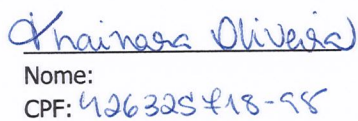 Thainara Oliveira
Nome:
CPF: 426325718-98